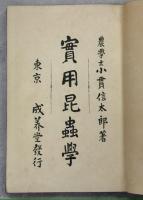 農學士小貫信太郎著
實用昆蟲學
東京 成美堂發行